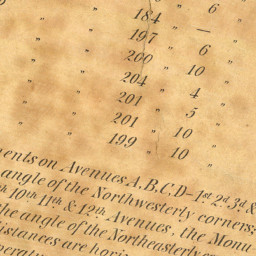 " 6 "
" 184 " — "
" 197 " 6 "
" 200 " 10 "
" 204 " 4 "
" 201 " 5 "
" 201 " 10 "
199 " 10 "
ments on Avenues A, B, C, D – 1st 2d 3d &
angle of the Northwesterly corners;
10th 11th & 12th Avenues, the Monu
the angle of the Northeasterly
istances are